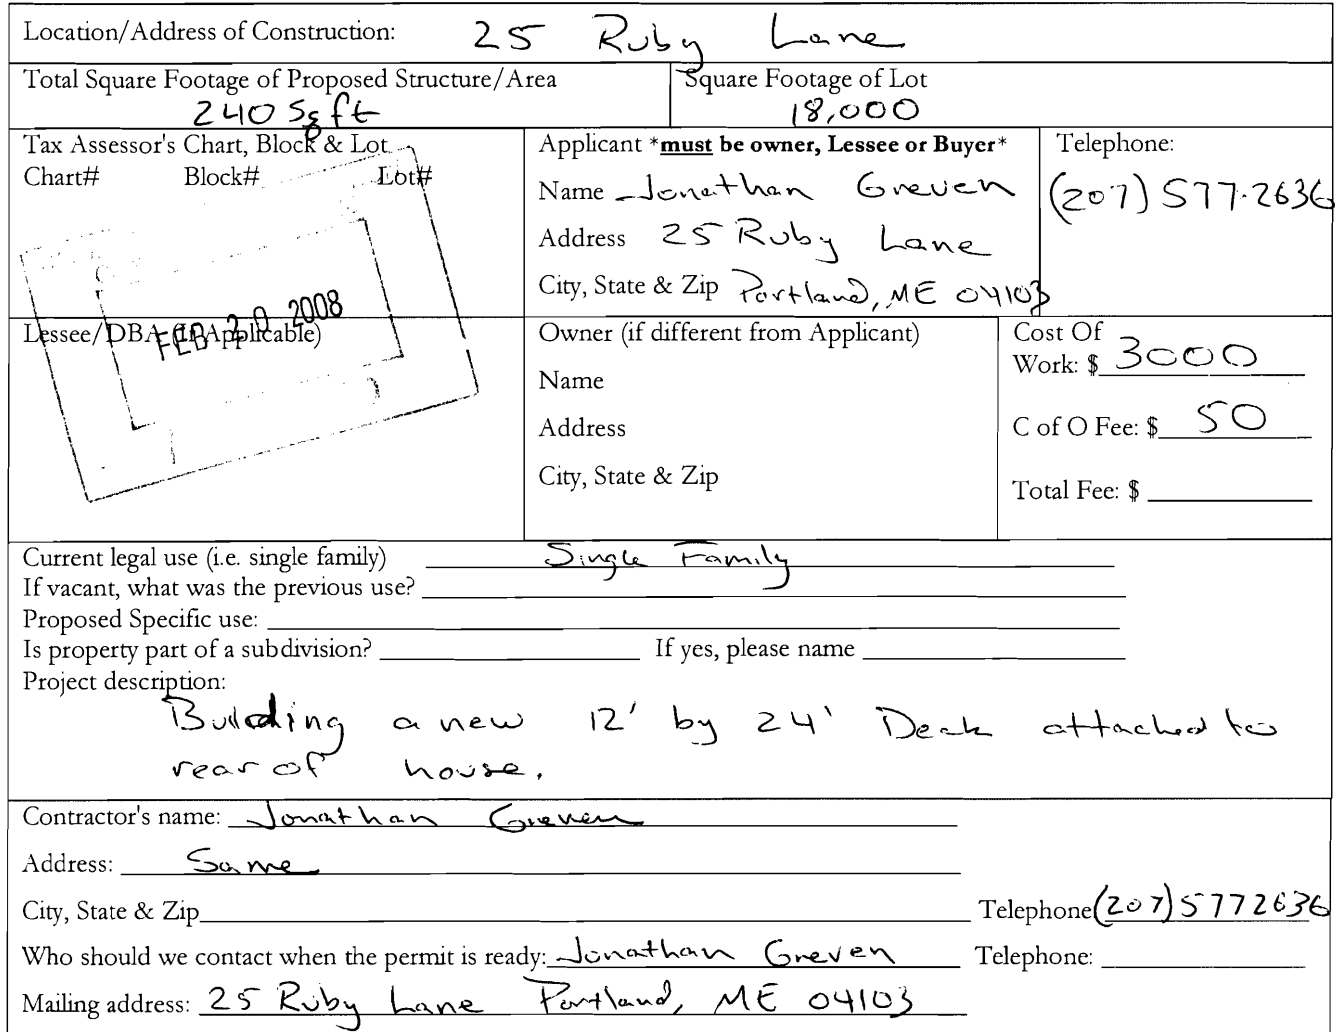 Location/Address of Construction: 25 Ruby Lane
Total Square Footage of Proposed Structure/Area Square Footage of Lot
240 Sq ft 18,000
Tax Assessor's Chart, Block & Lot Applicant *must be owner, Lessee or Buyer* Telephone:
Chart# Block# Lot# Name Jonathan Greven (207) 577-2636
Address 25 Ruby Lane
City, State & Zip Portland, ME 04103
FEB 20 2008
Lessee/DBA (If Applicable) Owner (if different from Applicant) Cost Of
Work: $ 3000
Name
Address C of O Fee: $ 50
City, State & Zip
Total Fee: $
Current legal use (i.e. single family) Single Family
If vacant, what was the previous use?
Proposed Specific use:
Is property part of a subdivision? If yes, please name
Project description:
Building a new 12' by 24' Deck attached to
rear of house.
Contractor's name: Jonathan Greven
Address: Same
City, State & Zip Telephone (207) 5772636
Who should we contact when the permit is ready: Jonathan Greven Telephone:
Mailing address: 25 Ruby Lane Portland, ME 04103